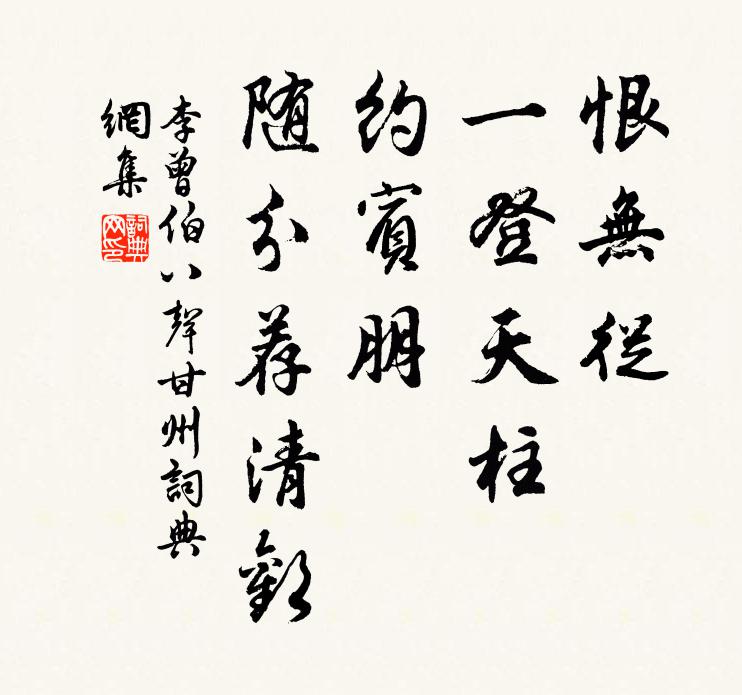 恨無從
一登天柱
約賓朋
随分荐清歡
李曾伯八聲甘州詞典
網集
詞典網印